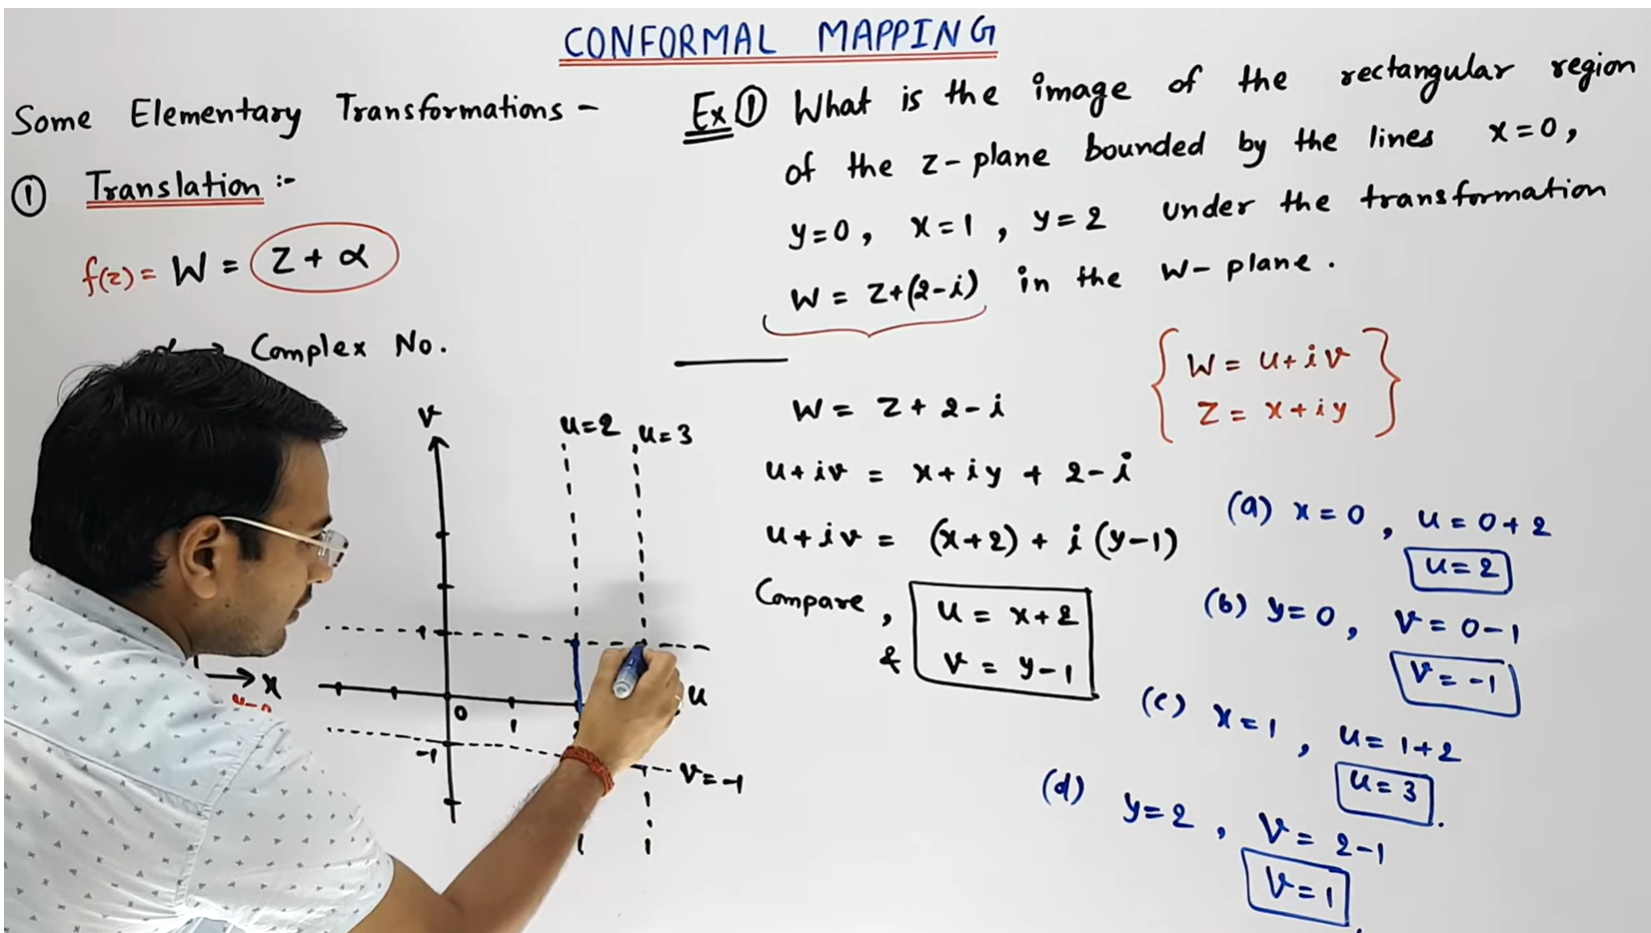 CONFORMAL MAPPING
Some Elementary Transformations -
① Translation :-
f(z) = W = Z + α
α → Complex No.
Ex ① What is the image of the rectangular region
of the z-plane bounded by the lines x=0,
y=0, x=1, y=2 under the transformation
W = Z+(2-i) in the W-plane.
{ W = u+iv
Z = x+iy }
W = Z + 2 - i
u+iv = x+iy + 2-i
u+iv = (x+2) + i (y-1)
Compare, u = x+2
& v = y-1
(a) x=0, u=0+2
u=2
(b) y=0, v=0-1
v=-1
(c) x=1, u=1+2
u=3.
(d) y=2, v=2-1
v=1
v
u=2 u=3
1
x
u
0 1
-1
v=-1